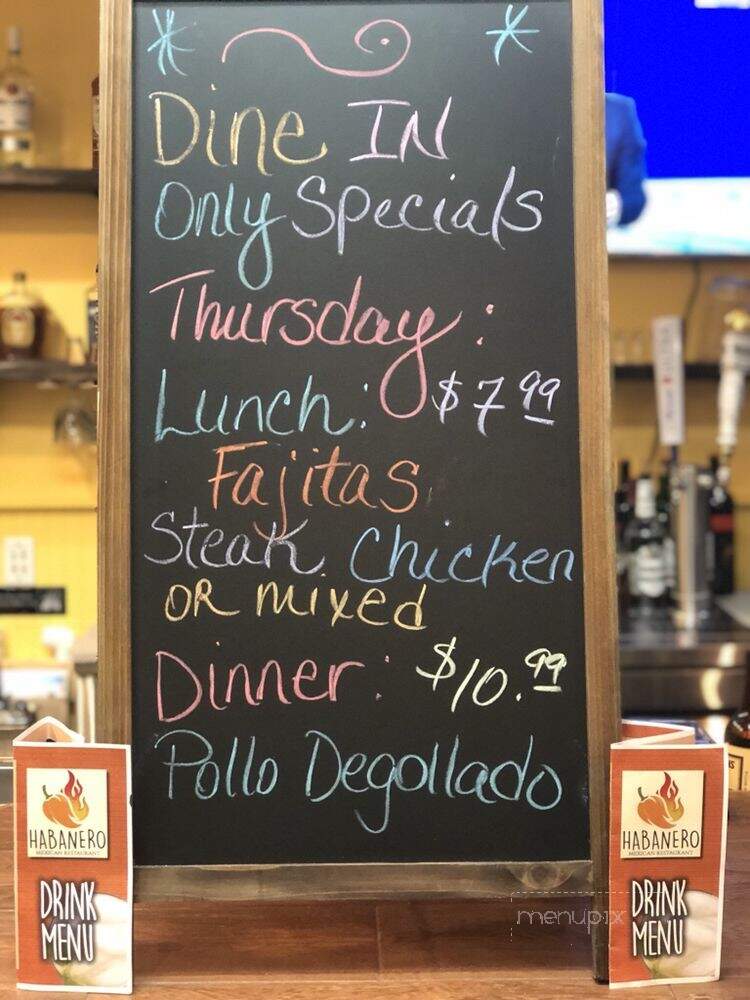 Dine IN
Only Specials
Thursday:
Lunch: $7 99
Fajitas
Steak Chicken
OR mixed
Dinner: $10.99
Pollo Degollado
HABANERO
MEXICAN RESTAURANT
DRINK
MENU
HABANERO
MEXICAN RESTAURANT
DRINK
MENU
menupix